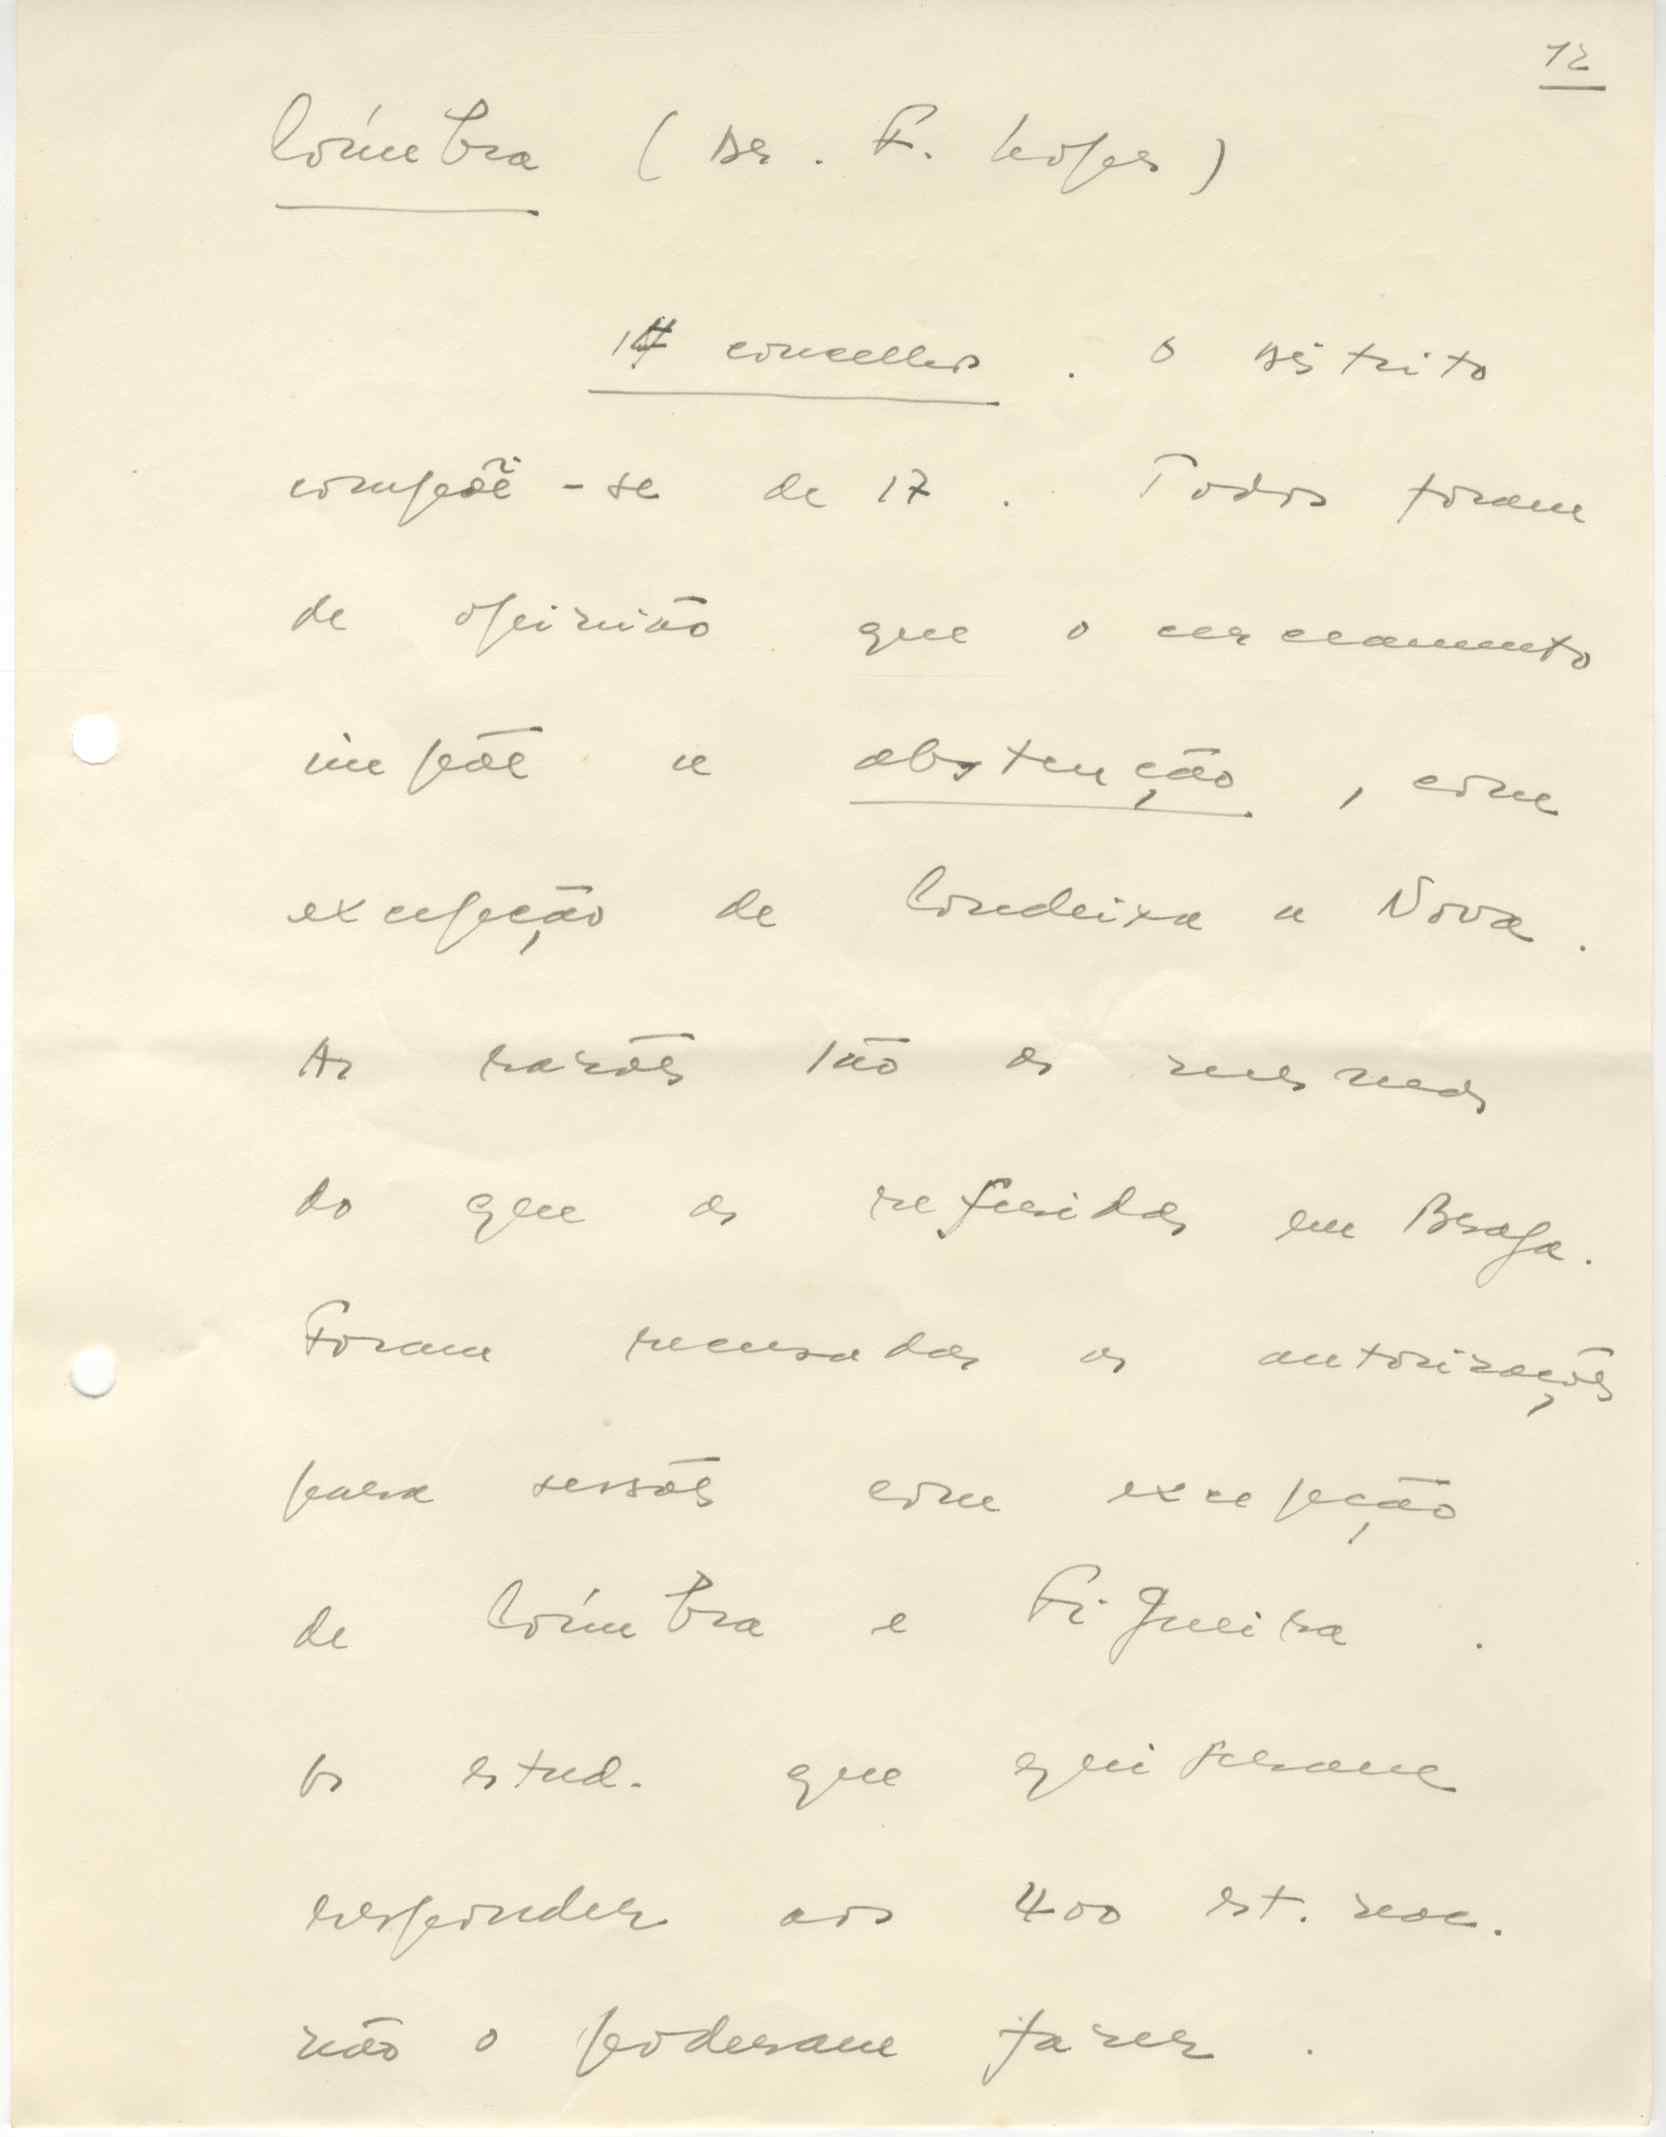 12
Coímbra (Dr. F. Lopes)
14 concelhos. O distrito
compõe-se de 17. Todos foram
de opinião que o cerceamento
impõe a abstenção, com
excepção de Condeixa a Nova.
As razões são as mesmas
do que as referidas em Braga.
Foram recusadas as autorizações
para sessões com excepção
de Coímbra e Figueira.
Os estud. que quiseram
responder aos 400 est. nac.
não o poderam fazer.